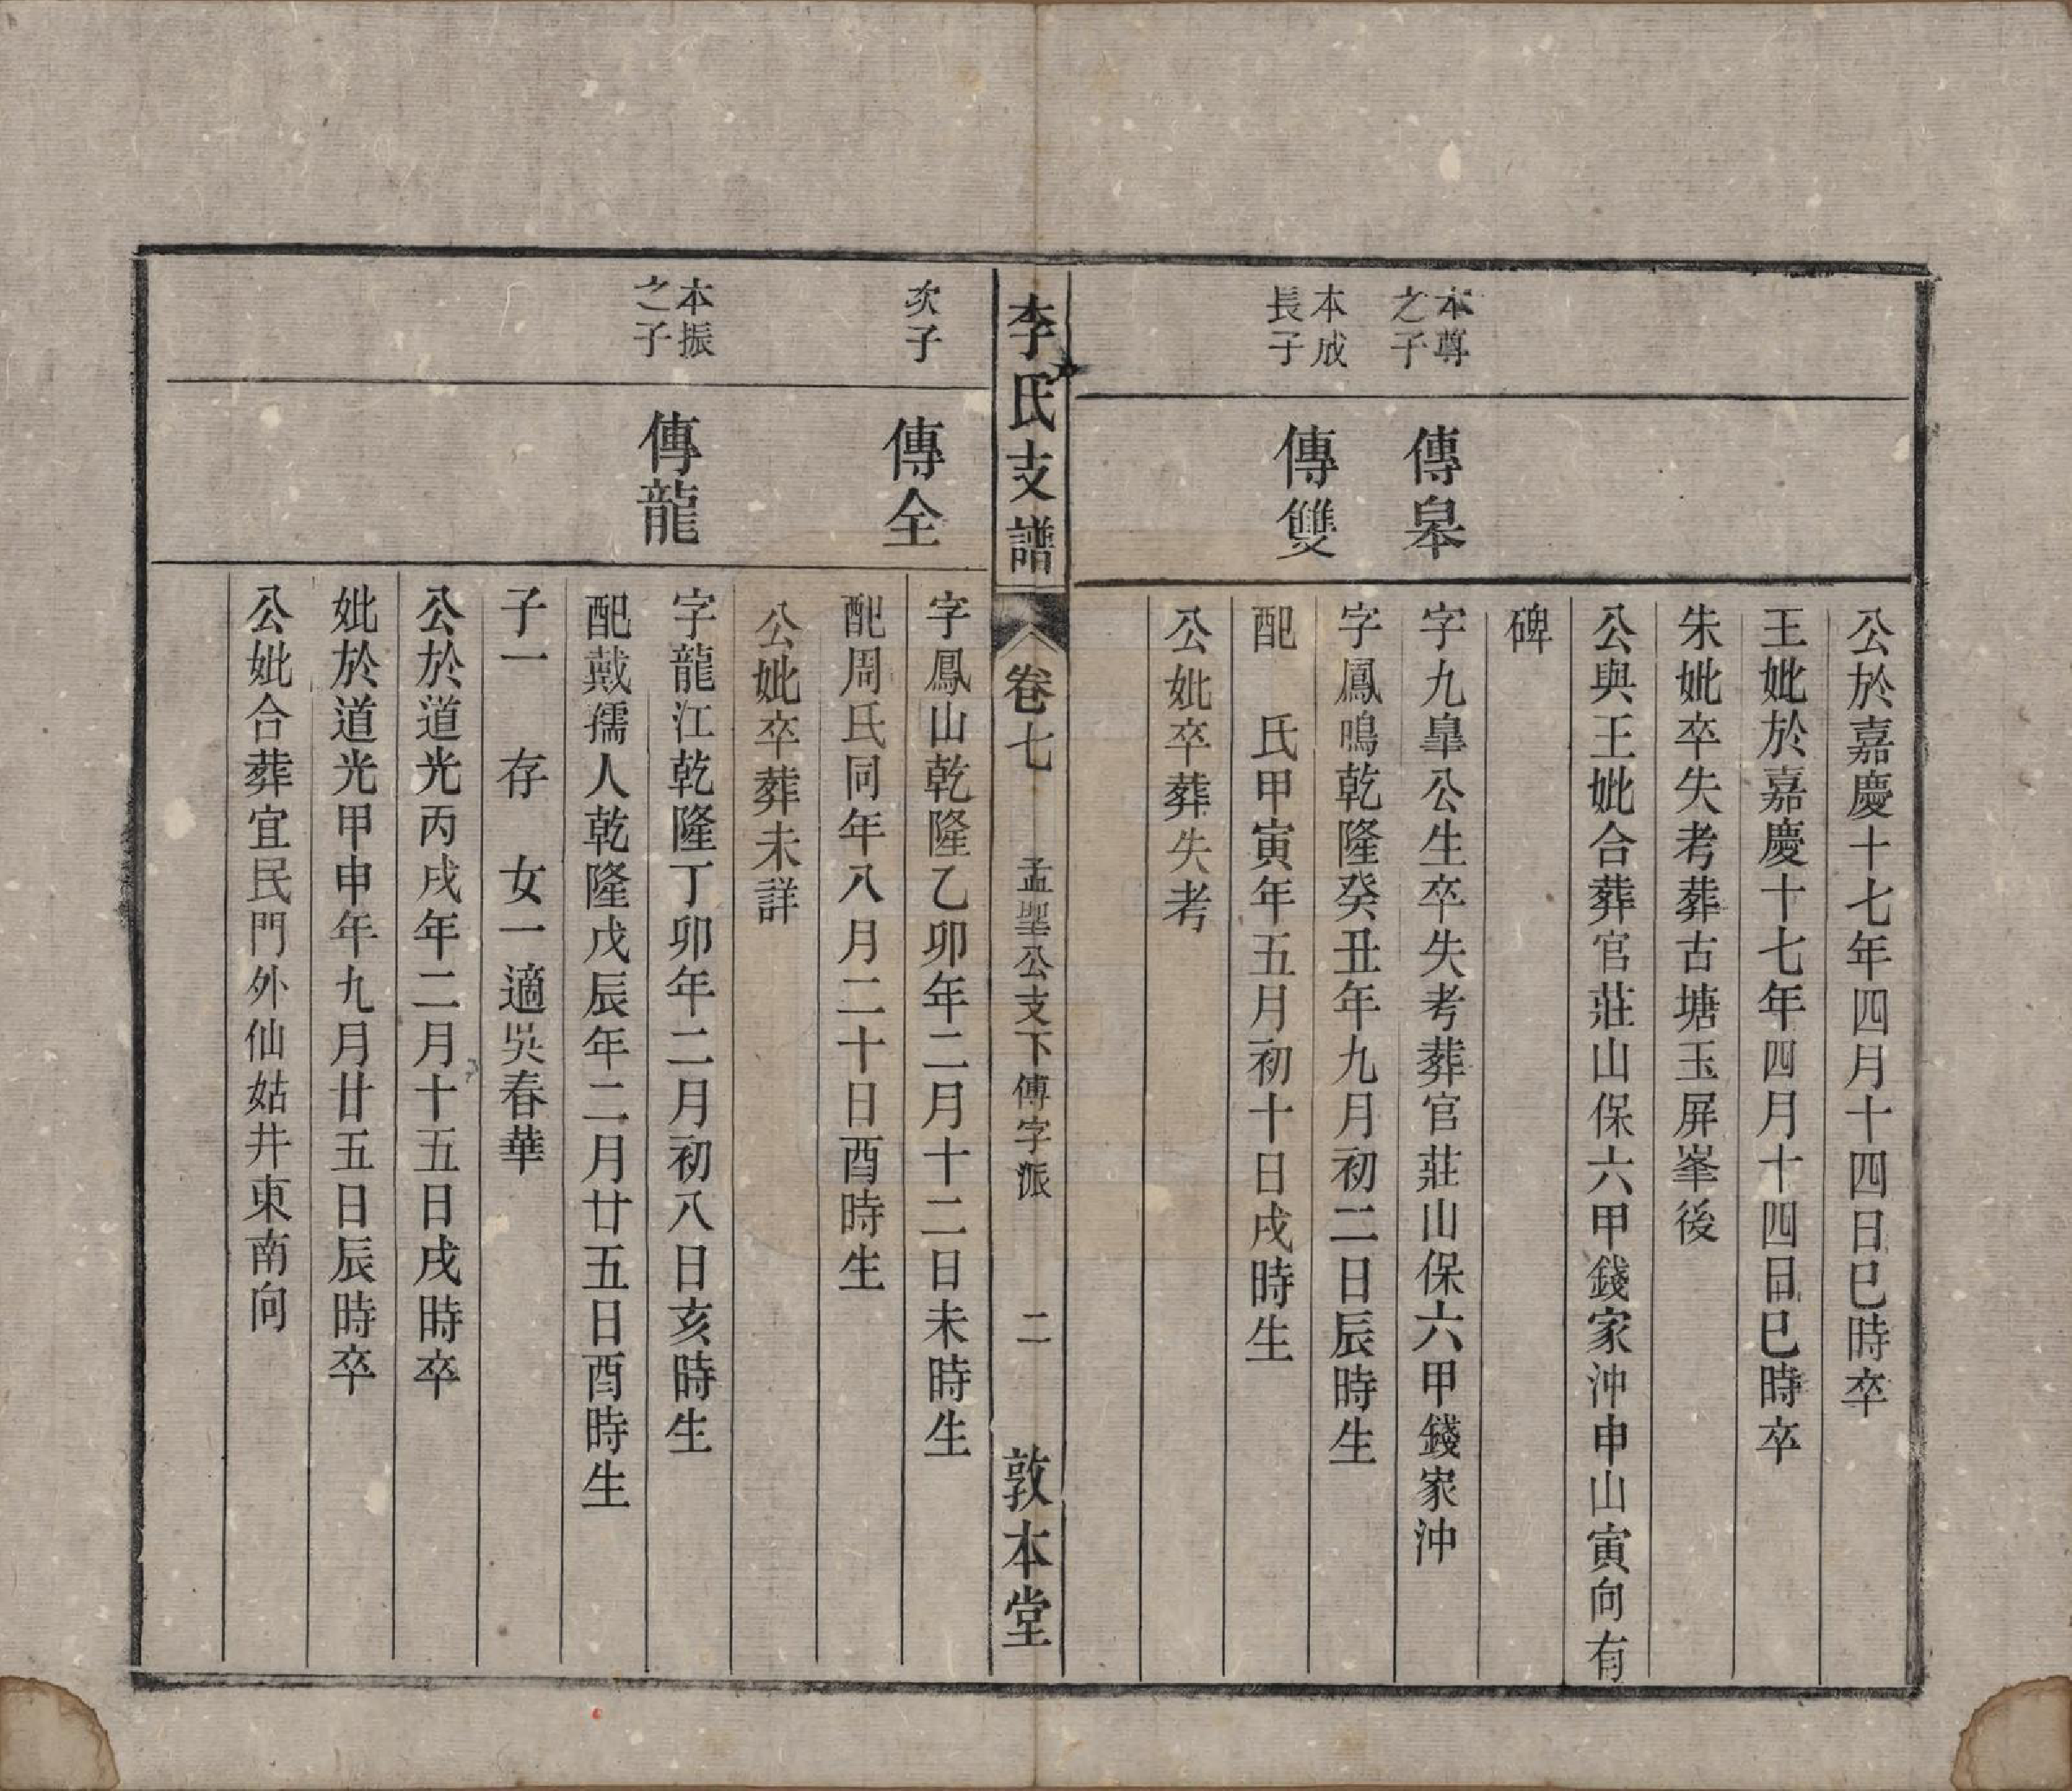 公於嘉慶十七年四月十四日巳時卒
王妣於嘉慶十七年四月十四日巳時卒
朱妣卒失考葬古塘玉屏峯後
公與王妣合葬官莊山保六甲錢家沖申山寅向有
碑
本尊
之子
傳皋
字九皐公生卒失考葬官莊山保六甲錢家沖
本成
長子
傳雙
字鳳鳴乾隆癸丑年九月初二日辰時生
配　氏甲寅年五月初十日戌時生
公妣卒葬失考
李氏支譜
卷七
孟聖公支下傳字派
二
敦本堂
次子
傳全
字鳳山乾隆乙卯年二月十二日未時生
配周氏同年八月二十日酉時生
公妣卒葬未詳
本振
之子
傳龍
字龍江乾隆丁卯年二月初八日亥時生
配戴孺人乾隆戊辰年二月廿五日酉時生
子一　存　女一適吳春華
公於道光丙戌年二月十五日戌時卒
妣於道光甲申年九月廿五日辰時卒
公妣合葬宜民門外仙姑井東南向